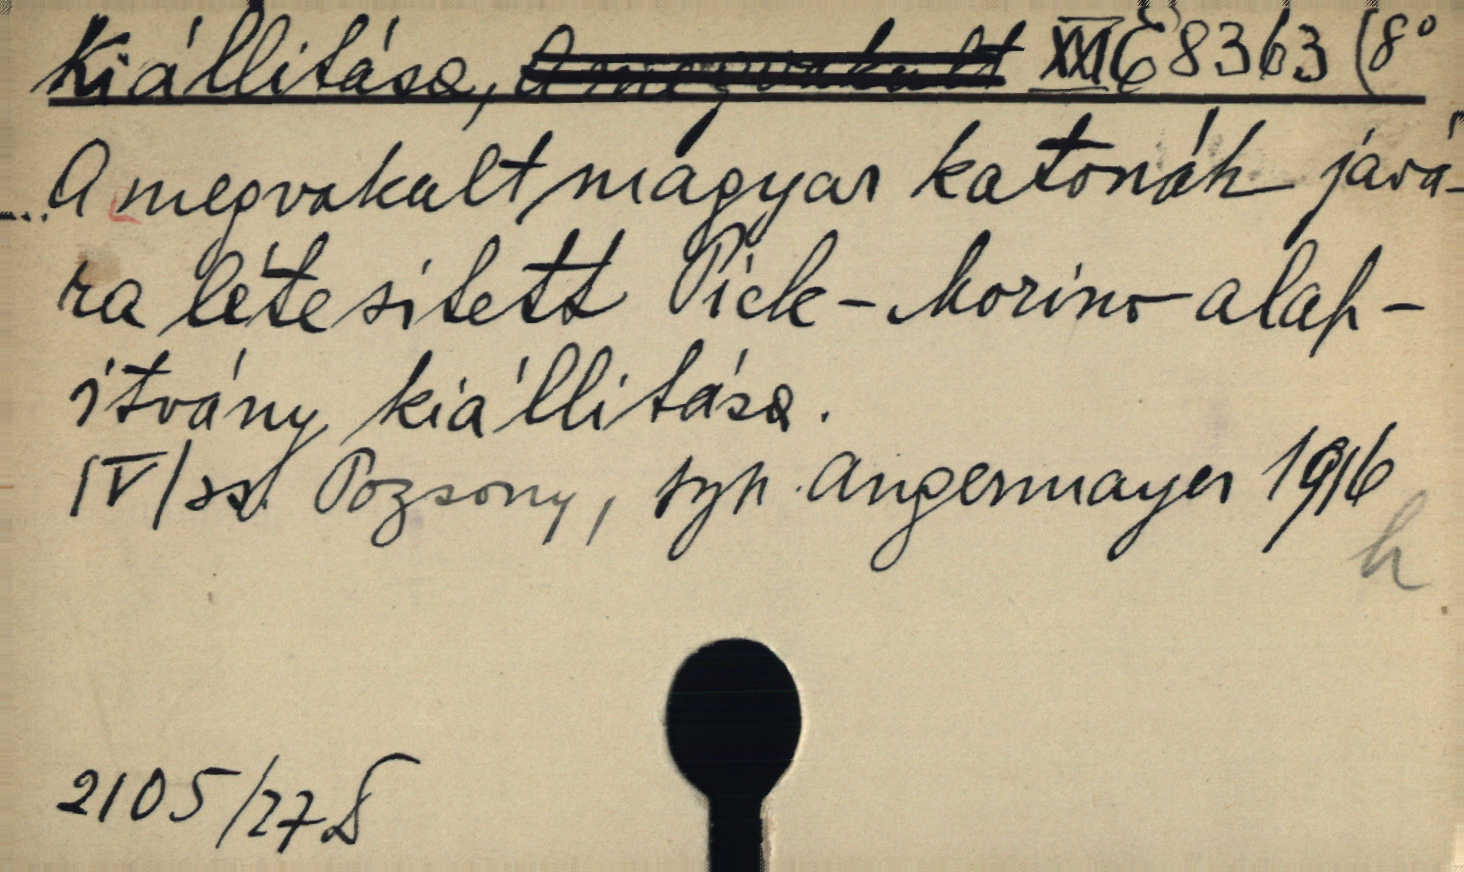 Kiállitása, A megvakult XXI E 8363 (8°
A megvakult magyar katonák javá-
ra létesitett Pick-Morino alap-
itvány kiállitása.
IV/ Pozsony, typ. Angermayer 1916
h
2105/27